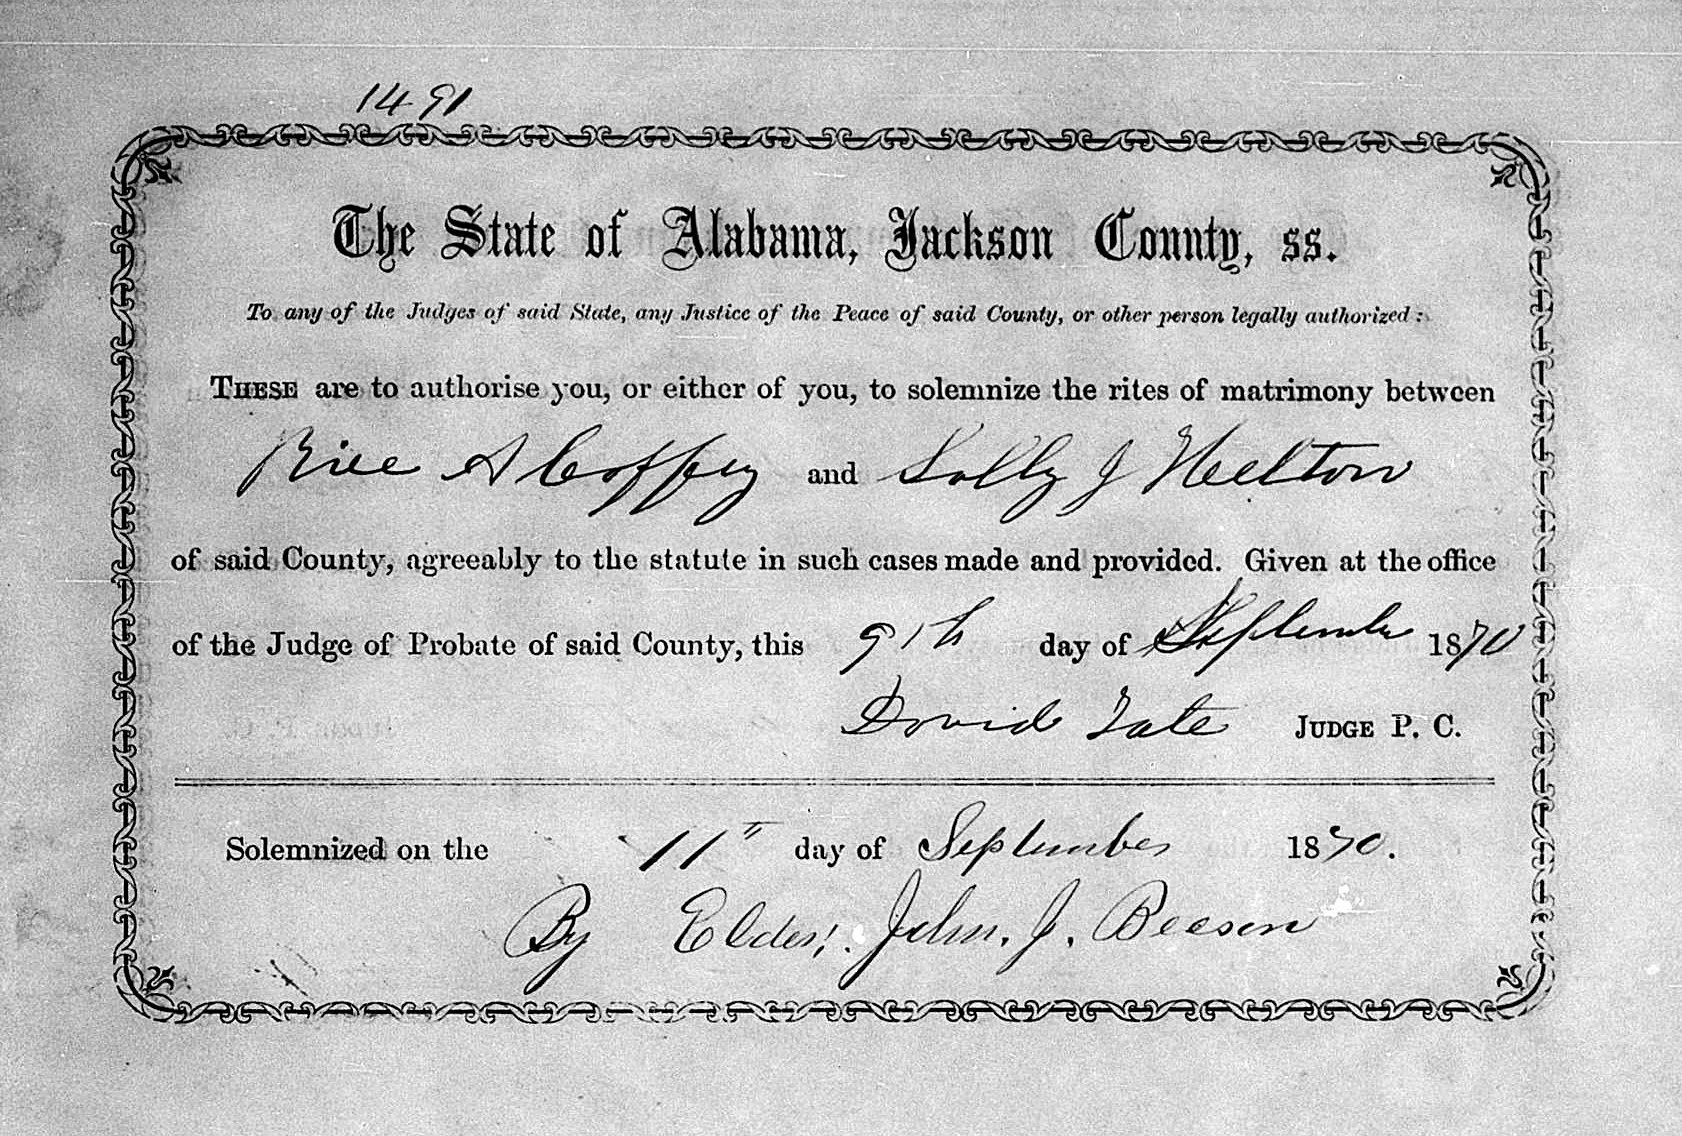 1491
The State of Alabama, Jackson County, ss.
To any of the Judges of said State, any Justice of the Peace of said County, or other person legally authorized:
THESE are to authorise you, or either of you, to solemnize the rites of matrimony between
Rice A Coffey and Sally J Helton
of said County, agreeably to the statute in such cases made and provided. Given at the office
of the Judge of Probate of said County, this 9th day of September 1870
David Tate JUDGE P. C.
Solemnized on the 11" day of September 1870.
By Elder. John. J. Beeson